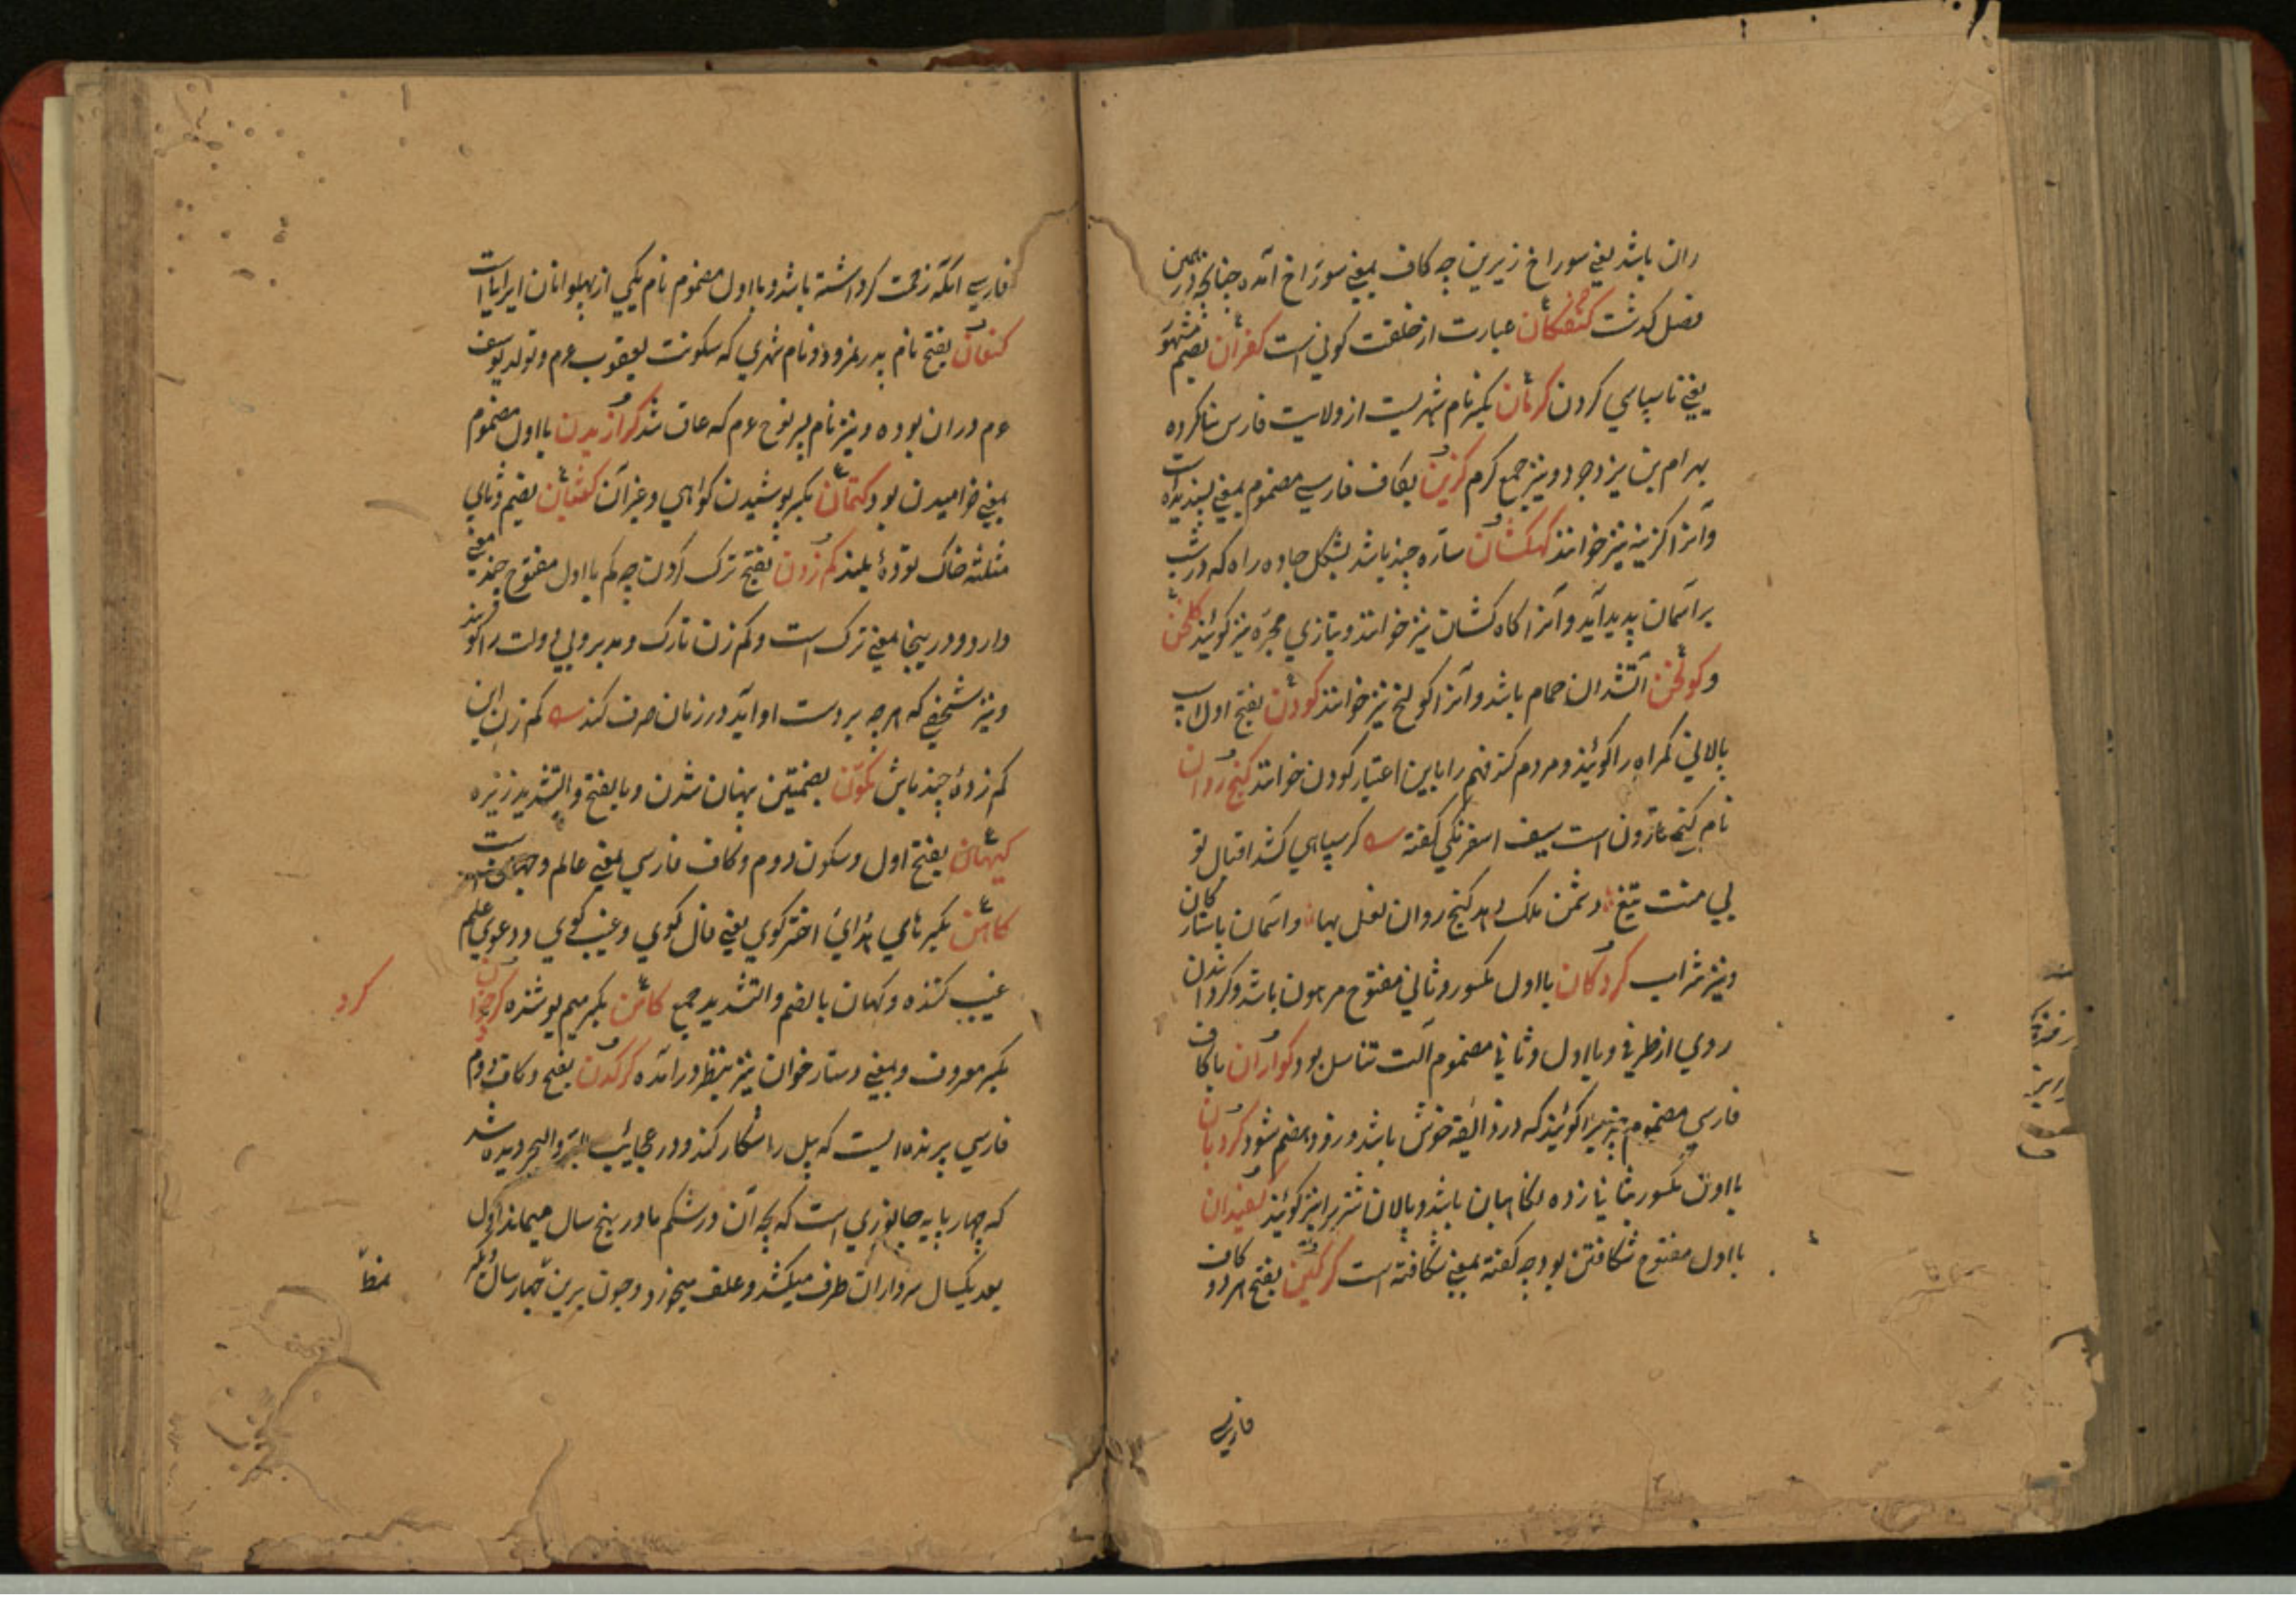 ران باشد یعنی سوراخ زیرین چه کاف بمعنی سوراخ آمده چنانچه درین
فصل گذشت کنفکان عبارت از خلقت کونی است کفران بضم مشهور
یعنی ناسپاسی کردن کرمان بکسر نام شهریست از ولایت فارس بنا کرده
بهرام بن یزدجرد و نیز جمع کرم گزین بکاف فارسی مضموم بمعنی پسندیده است
و آنرا گزینه نیز خوانند کهکشان ستاره چند باشد بشکل جاده راه که در شب
بر آسمان پدید آید و آنرا کاه کشان نیز خوانند و بتازی مجره نیز گویند گلخن
و کولخن آتشدان حمام باشد و آنرا کولخ نیز خوانند کودن بفتح اول اسپ
پالانی گمراه را گویند و مردم کند فهم را باین اعتبار کودن خوانند گنج روان
نام گنج قارون است سیف اسفرنگی گفته گر سپاهی کشد اقبال تو
بی منت تیغ دشمن ملک دهد گنج روان لعل بها و آسمان باستارکان
و نیز شراب کردکان بااول مکسور و ثانی مفتوح مرهون باشد و کرداندن
روی از طرفی و بااول و ثانی مضموم آلت تناسل بود کواران باکاف
فارسی مضموم چیزیرا گویند که در ذائقه خوش باشد و زود هضم شود کردبان
بااول مکسور بثانی زده نگاهبان باشد و پالان شتر را نیز گویند کفیدان
بااول مفتوح شکافتن بود چه کفته بمعنی شکافته است کرکین بفتح هر دو کاف
فارسی
فارسی آنکه زحمت کر داشته باشد و بااول مضموم نام یکی از پهلوانان ایران است
کنعان بفتح نام پدر نمرود و نام شهری که سکونت یعقوب عم و تولد یوسف
عم دران بوده و نیز نام پسر نوح عم که عاق شد کرازیدن بااول مضموم
بمعنی خرامیدن بود کتمان بکسر پوشیدن گواهی و غیر آن کثبان بضم و ثای
مثلثه خاک توده بلند کم زدن بفتح ترک کردن چه کم بااول مفتوح چند معنی
دارد و درینجا بمعنی ترک است و کم زن تارک و مدبر و بی دولت را گویند
و نیز شخصی که هرچه بر دست او آید در زمان صرف کند کم زن این
کم زده چند باش کمون بضمتین پنهان شدن و بالفتح و التشدید زیره
کیهان بفتح اول و سکون دوم و کاف فارسی بمعنی عالم و جهان است
کاهن بکسر های اختر گوی یعنی فال گوی و غیب گوی و دعوی علم
غیب کننده و کهان بالضم و التشدید جمع کامن بکسر میم پوشنده
کرد
بکسر معروف و بمعنی دستار خوان نیز بنظر در آمده کرکدن بفتح و کاف دوم
فارسی پرنده ایست که پیل را شکار کند و در عجایب البر و البحر دیده شد
که چهار پایه جانوری است که بچه آن در شکم مادر پنج سال میماند اول
بعد یکسال سر وار ان طرف میکشد و علف میخورد و چون برین چهار سال دیگر